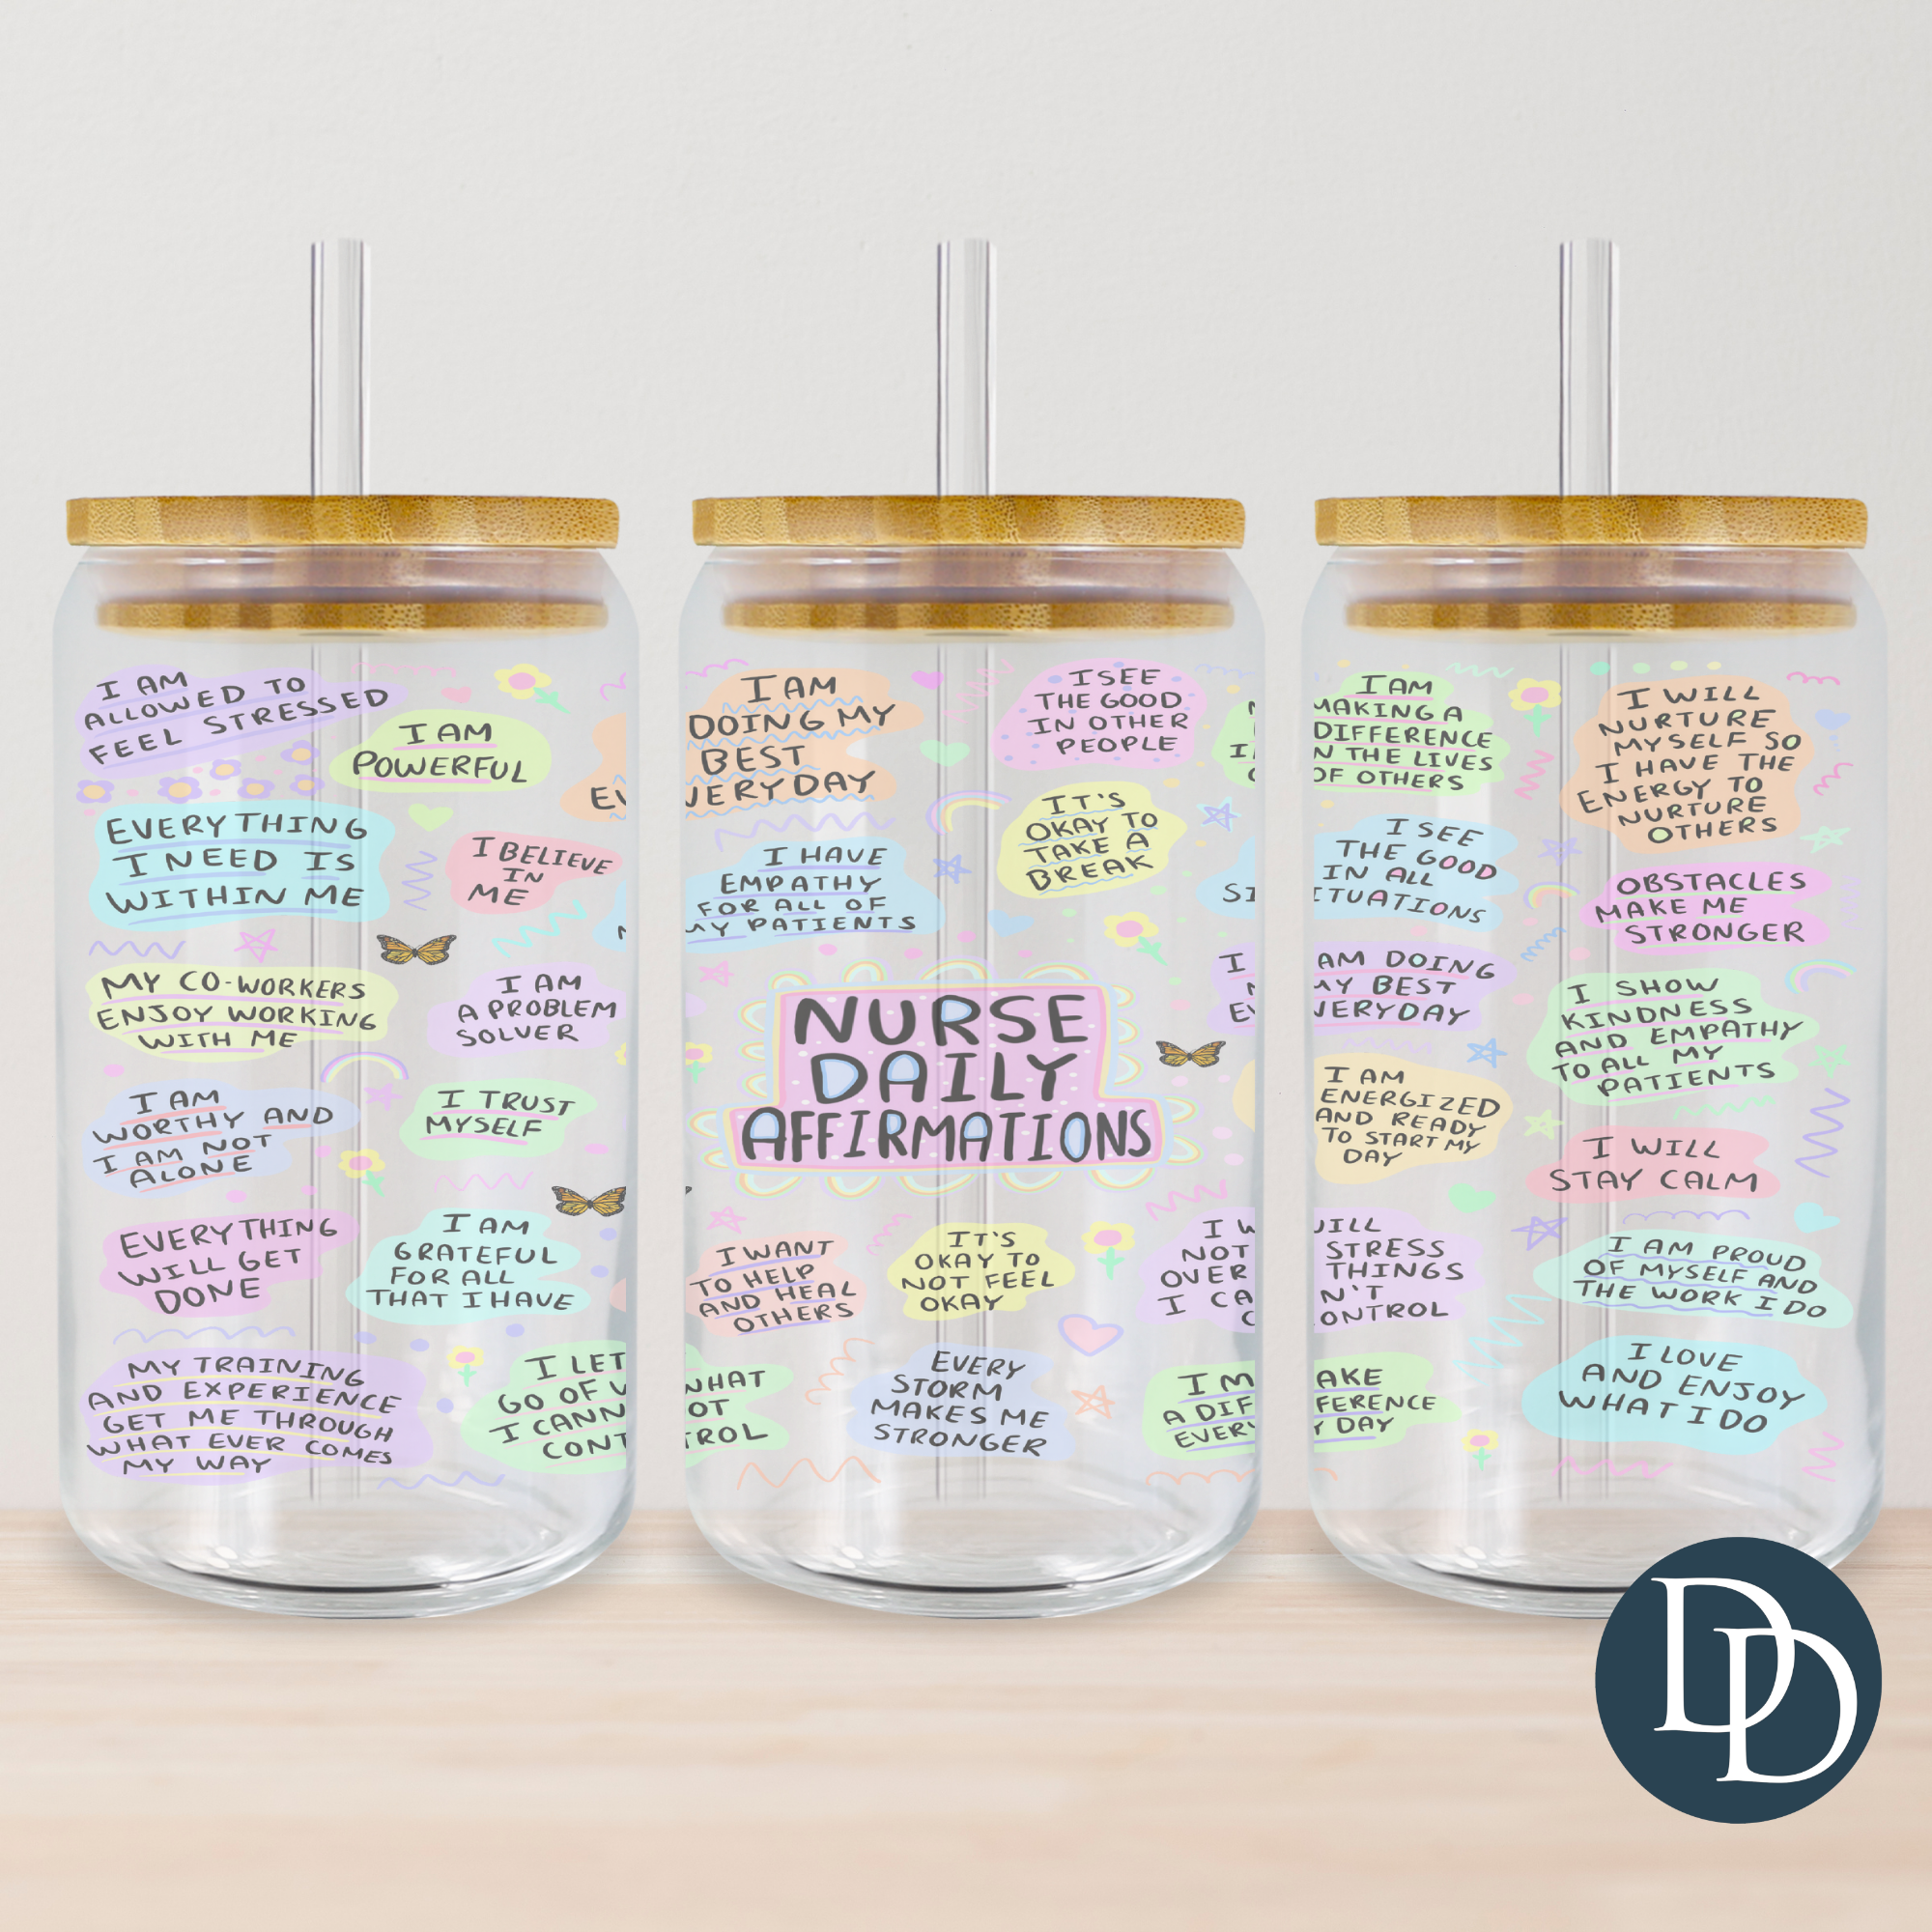 I AM
ALLOWED TO
FEEL STRESSED
I AM
POWERFUL
EVERYTHING
I NEED IS
WITHIN ME
I BELIEVE
IN
ME
MY CO-WORKERS
ENJOY WORKING
WITH ME
I AM
A PROBLEM
SOLVER
I AM
WORTHY AND
I AM NOT
ALONE
I TRUST
MYSELF
EVERYTHING
WILL GET
DONE
I AM
GRATEFUL
FOR ALL
THAT I HAVE
MY TRAINING
AND EXPERIENCE
GET ME THROUGH
WHAT EVER COMES
MY WAY
I LET
GO OF
I CANN
CONT
I AM
DOING MY
BEST
VERYDAY
I SEE
THE GOOD
IN OTHER
PEOPLE
IT'S
OKAY TO
TAKE A
BREAK
I HAVE
EMPATHY
FOR ALL OF
MY PATIENTS
NURSE
DAILY
AFFIRMATIONS
I WANT
TO HELP
AND HEAL
OTHERS
IT'S
OKAY TO
NOT FEEL
OKAY
I W
NOT
OVER
I CA
C
WHAT
OT
TROL
EVERY
STORM
MAKES ME
STRONGER
I M
A DIF
EVERY
I AM
MAKING A
DIFFERENCE
N THE LIVES
OF OTHERS
I WILL
NURTURE
MYSELF SO
I HAVE THE
ENERGY TO
NURTURE
OTHERS
I SEE
THE GOOD
IN ALL
ITUATIONS
OBSTACLES
MAKE ME
STRONGER
AM DOING
MY BEST
VERYDAY
I SHOW
KINDNESS
AND EMPATHY
TO ALL MY
PATIENTS
I AM
ENERGIZED
AND READY
TO START MY
DAY
I WILL
STAY CALM
WILL
STRESS
THINGS
N'T
ONTROL
I AM PROUD
OF MYSELF AND
THE WORK I DO
AKE
FERENCE
Y DAY
I LOVE
AND ENJOY
WHAT I DO
DD